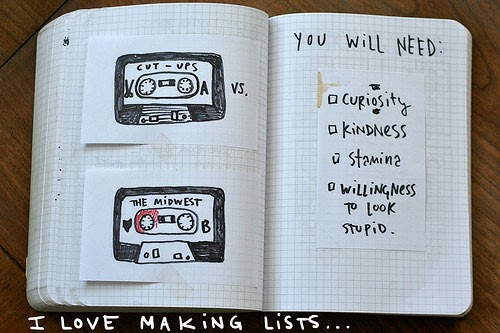 CUT-UPS
A
VS.
THE MIDWEST
B
YOU WILL NEED:
CURIOSITY
KINDNESS
STAMINA
WILLINGNESS
TO LOOK
STUPID.
I LOVE MAKING LISTS...